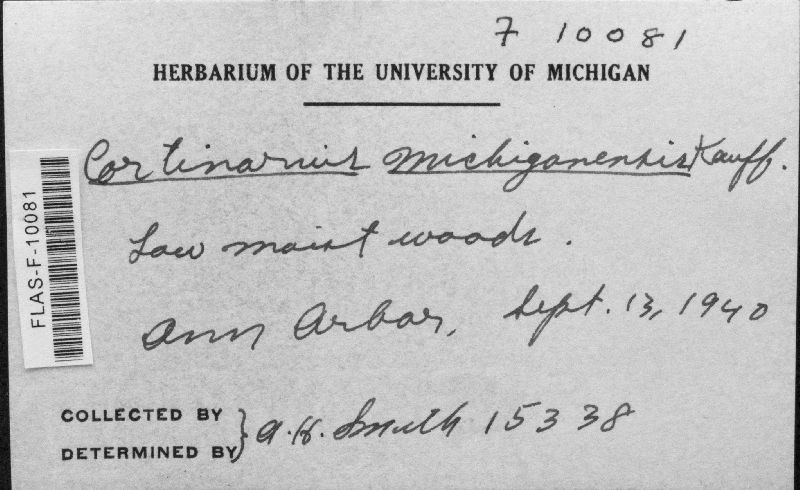 F 10081
HERBARIUM OF THE UNIVERSITY OF MICHIGAN
Cortinarius michiganensis Kauff.
Low moist woods.
Ann Arbor, Sept. 13, 1940
COLLECTED BY
DETERMINED BY } A.H. Smith 15338
FLAS-F-10081